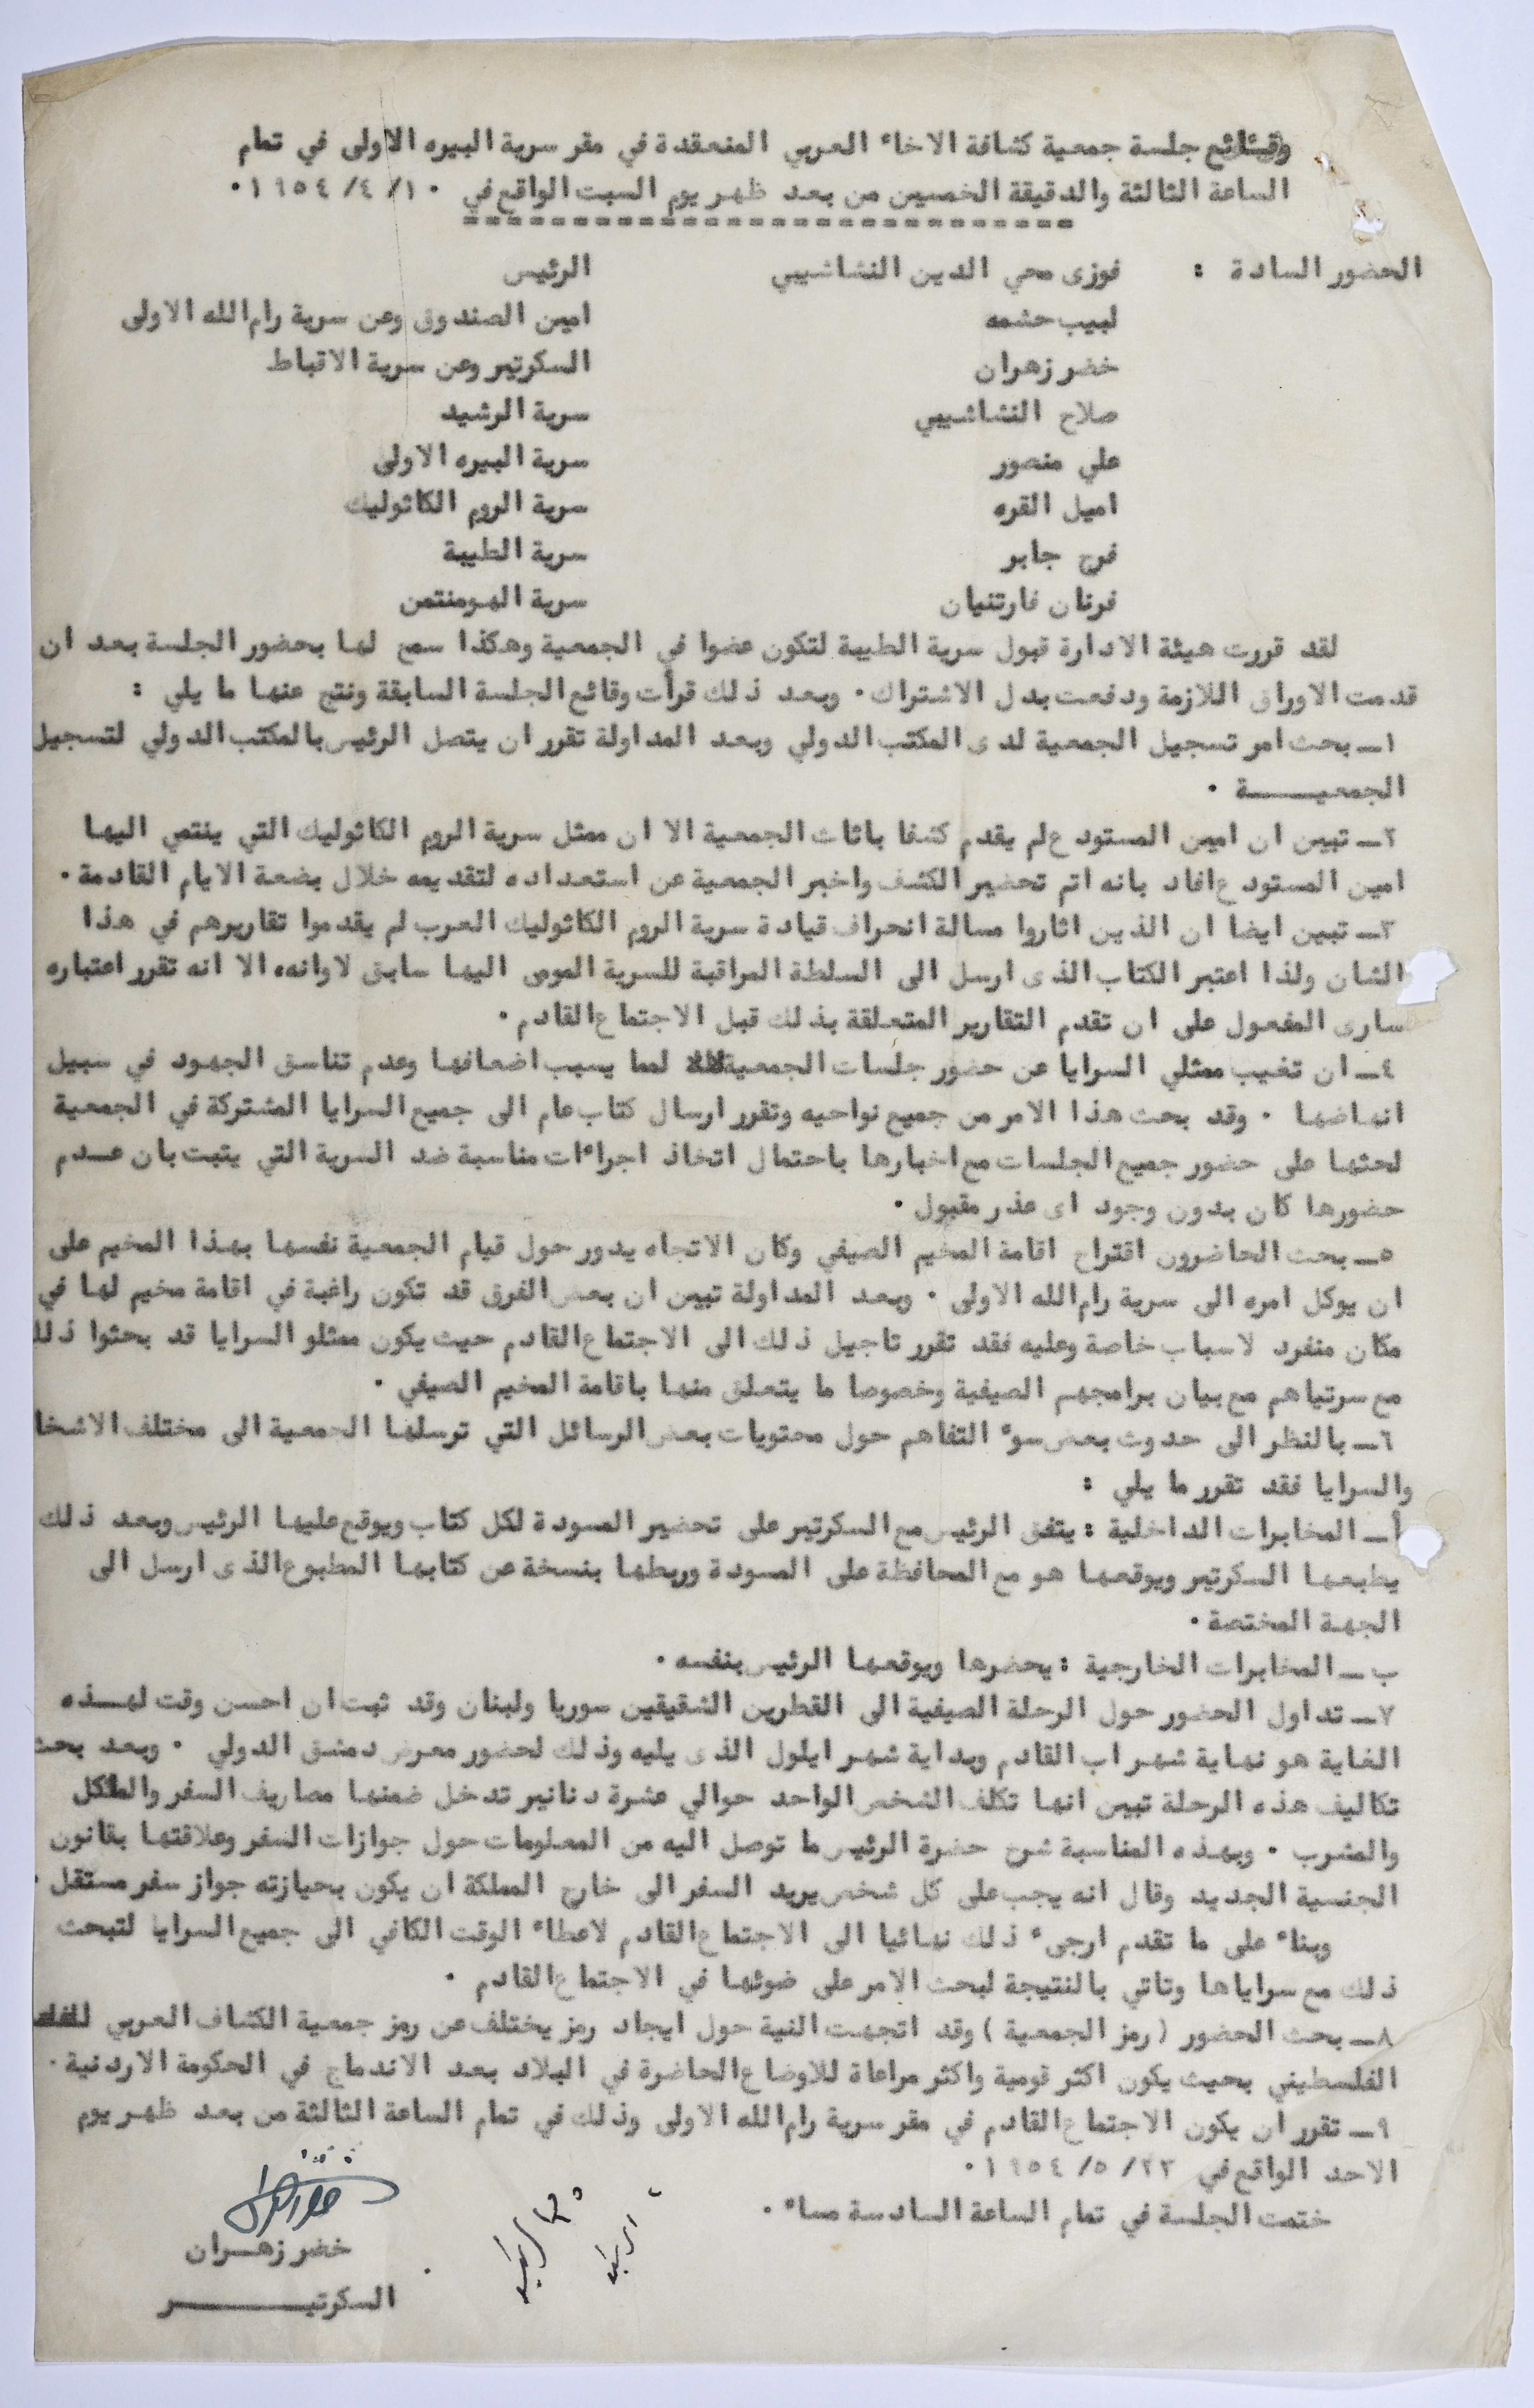 وقائع جلسة جمعية كشافة الاخاء العربي المنعقدة في مقر سرية البيره الاولى في تمام
الساعة الثالثة والدقيقة الخمسين من بعد ظهر يوم السبت الواقع في ١٠/ ٤/ ١٩٥٤٠
==============================
الحضور السادة : فوزى محي الدين النشاشيبي الرئيس
لبيب حشمه امين الصندوق وعن سرية رام الله الاولى
خضر زهران السكرتير وعن سرية الاقباط
صلاح النشاشيبي سرية الرشيد
علي منصور سرية البيره الاولى
اميل القره سرية الروم الكاثوليك
فرح جابر سرية الطيبة
فرنان فارتنيان سرية الهومنتمن
لقد قررت هيئة الادارة قبول سرية الطيبة لتكون عضوا في الجمعية وهكذا سمح لها بحضور الجلسة بعد ان
قدمت الاوراق اللازمة ودفعت بدل الاشتراك ٠ وبعد ذلك قرأت وقائع الجلسة السابقة ونتج عنها ما يلي :
١ــ بحث امر تسجيل الجمعية لدى المكتب الدولي وبعد المداولة تقرر ان يتصل الرئيس بالمكتب الدولي لتسجيل
الجمعيــــــة ٠
٢ــ تبين ان امين المستودع لم يقدم كشفا باثاث الجمعية الا ان ممثل سرية الروم الكاثوليك التي ينتمي اليها
امين المستودع افاد بانه اتم تحضير الكشف واخبر الجمعية عن استعداده لتقديمه خلال بضعة الايام القادمة ٠
٣ــ تبين ايضا ان الذين اثاروا مسالة انحراف قيادة سرية الروم الكاثوليك العرب لم يقدموا تقاريرهم في هذا
الشان ولذا اعتبر الكتاب الذى ارسل الى السلطة المراقبة للسرية المومى اليها سابق لاوانه، الا انه تقرر اعتباره
سارى المفعول على ان تقدم التقارير المتعلقة بذلك قبل الاجتماع القادم ٠
٤ــ ان تغيب ممثلي السرايا عن حضور جلسات الجمعية لمما يسبب اضعافها وعدم تناسق الجهود في سبيل
انهاضها ٠ وقد بحث هذا الامر من جميع نواحيه وتقرر ارسال كتاب عام الى جميع السرايا المشتركة في الجمعية
لحثها على حضور جميع الجلسات مع اخبارها باحتمال اتخاذ اجراءات مناسبة ضد السرية التي يثبت بان عــدم
حضورها كان بدون وجود اى عذر مقبول ٠
٥ــ بحث الحاضرون اقتراح اقامة المخيم الصيفي وكان الاتجاه يدور حول قيام الجمعية نفسها بهذا المخيم على
ان يوكل امره الى سرية رام الله الاولى ٠ وبعد المداولة تبين ان بعض الفرق قد تكون راغبة في اقامة مخيم لها في
مكان منفرد لاسباب خاصة وعليه فقد تقرر تاجيل ذلك الى الاجتماع القادم حيث يكون ممثلو السرايا قد بحثوا ذلك
مع سرتياهم مع بيان برامجهم الصيفية وخصوصا ما يتعلق منها باقامة المخيم الصيفي ٠
٦ــ بالنظر الى حدوث بعض سوء التفاهم حول محتويات بعض الرسائل التي ترسلها الجمعية الى مختلف الاشخا
والسرايا فقد تقرر ما يلي :
أــ المخابرات الداخلية : يتفق الرئيس مع السكرتير على تحضير المسودة لكل كتاب ويوقع عليها الرئيس وبعد ذلك
يطبعها السكرتير ويوقعها هو مع المحافظة على المسودة وربطها بنسخة عن كتابها المطبوع الذى ارسل الى
الجهة المختصة ٠
ب ــ المخابرات الخارجية : يحضرها ويوقعها الرئيس بنفسه ٠
٧ــ تداول الحضور حول الرحلة الصيفية الى القطرين الشقيقين سوريا ولبنان وقد ثبت ان احسن وقت لهــذه
الغاية هو نهاية شهر اب القادم وبداية شهر ايلول الذى يليه وذلك لحضور معرض دمشق الدولي ٠ وبعد بحث
تكاليف هذه الرحلة تبين انها تكلف الشخص الواحد حوالي عشرة دنانير تدخل ضمنها مصاريف السفر والماكل
والمشرب ٠ وبهذه المناسبة شرح حضرة الرئيس ما توصل اليه من المعلومات حول جوازات السفر وعلاقتها بقانون
الجنسية الجديد وقال انه يجب على كل شخص يريد السفر الى خارج المملكة ان يكون بحيازته جواز سفر مستقل ٠
وبناء على ما تقدم ارجىء ذلك نهائيا الى الاجتماع القادم لاعطاء الوقت الكافي الى جميع السرايا لتبحث
ذلك مع سراياها وتاتي بالنتيجة لبحث الامر على ضوئها في الاجتماع القادم ٠
٨ــ بحث الحضور (رمز الجمعية) وقد اتجهت النية حول ايجاد رمز يختلف عن رمز جمعية الكشاف العربي
الفلسطيني بحيث يكون اكثر قومية واكثر مراعاة للاوضاع الحاضرة في البلاد بعد الاندماج في الحكومة الاردنية ٠
٩ــ تقرر ان يكون الاجتماع القادم في مقر سرية رام الله الاولى وذلك في تمام الساعة الثالثة من بعد ظهر يوم
الاحد الواقع في ٢٣/ ٥/ ١٩٥٤٠
ختمت الجلسة في تمام الساعة السادسة مساء ٠
خضر زهــران
السكرتيــــــــر